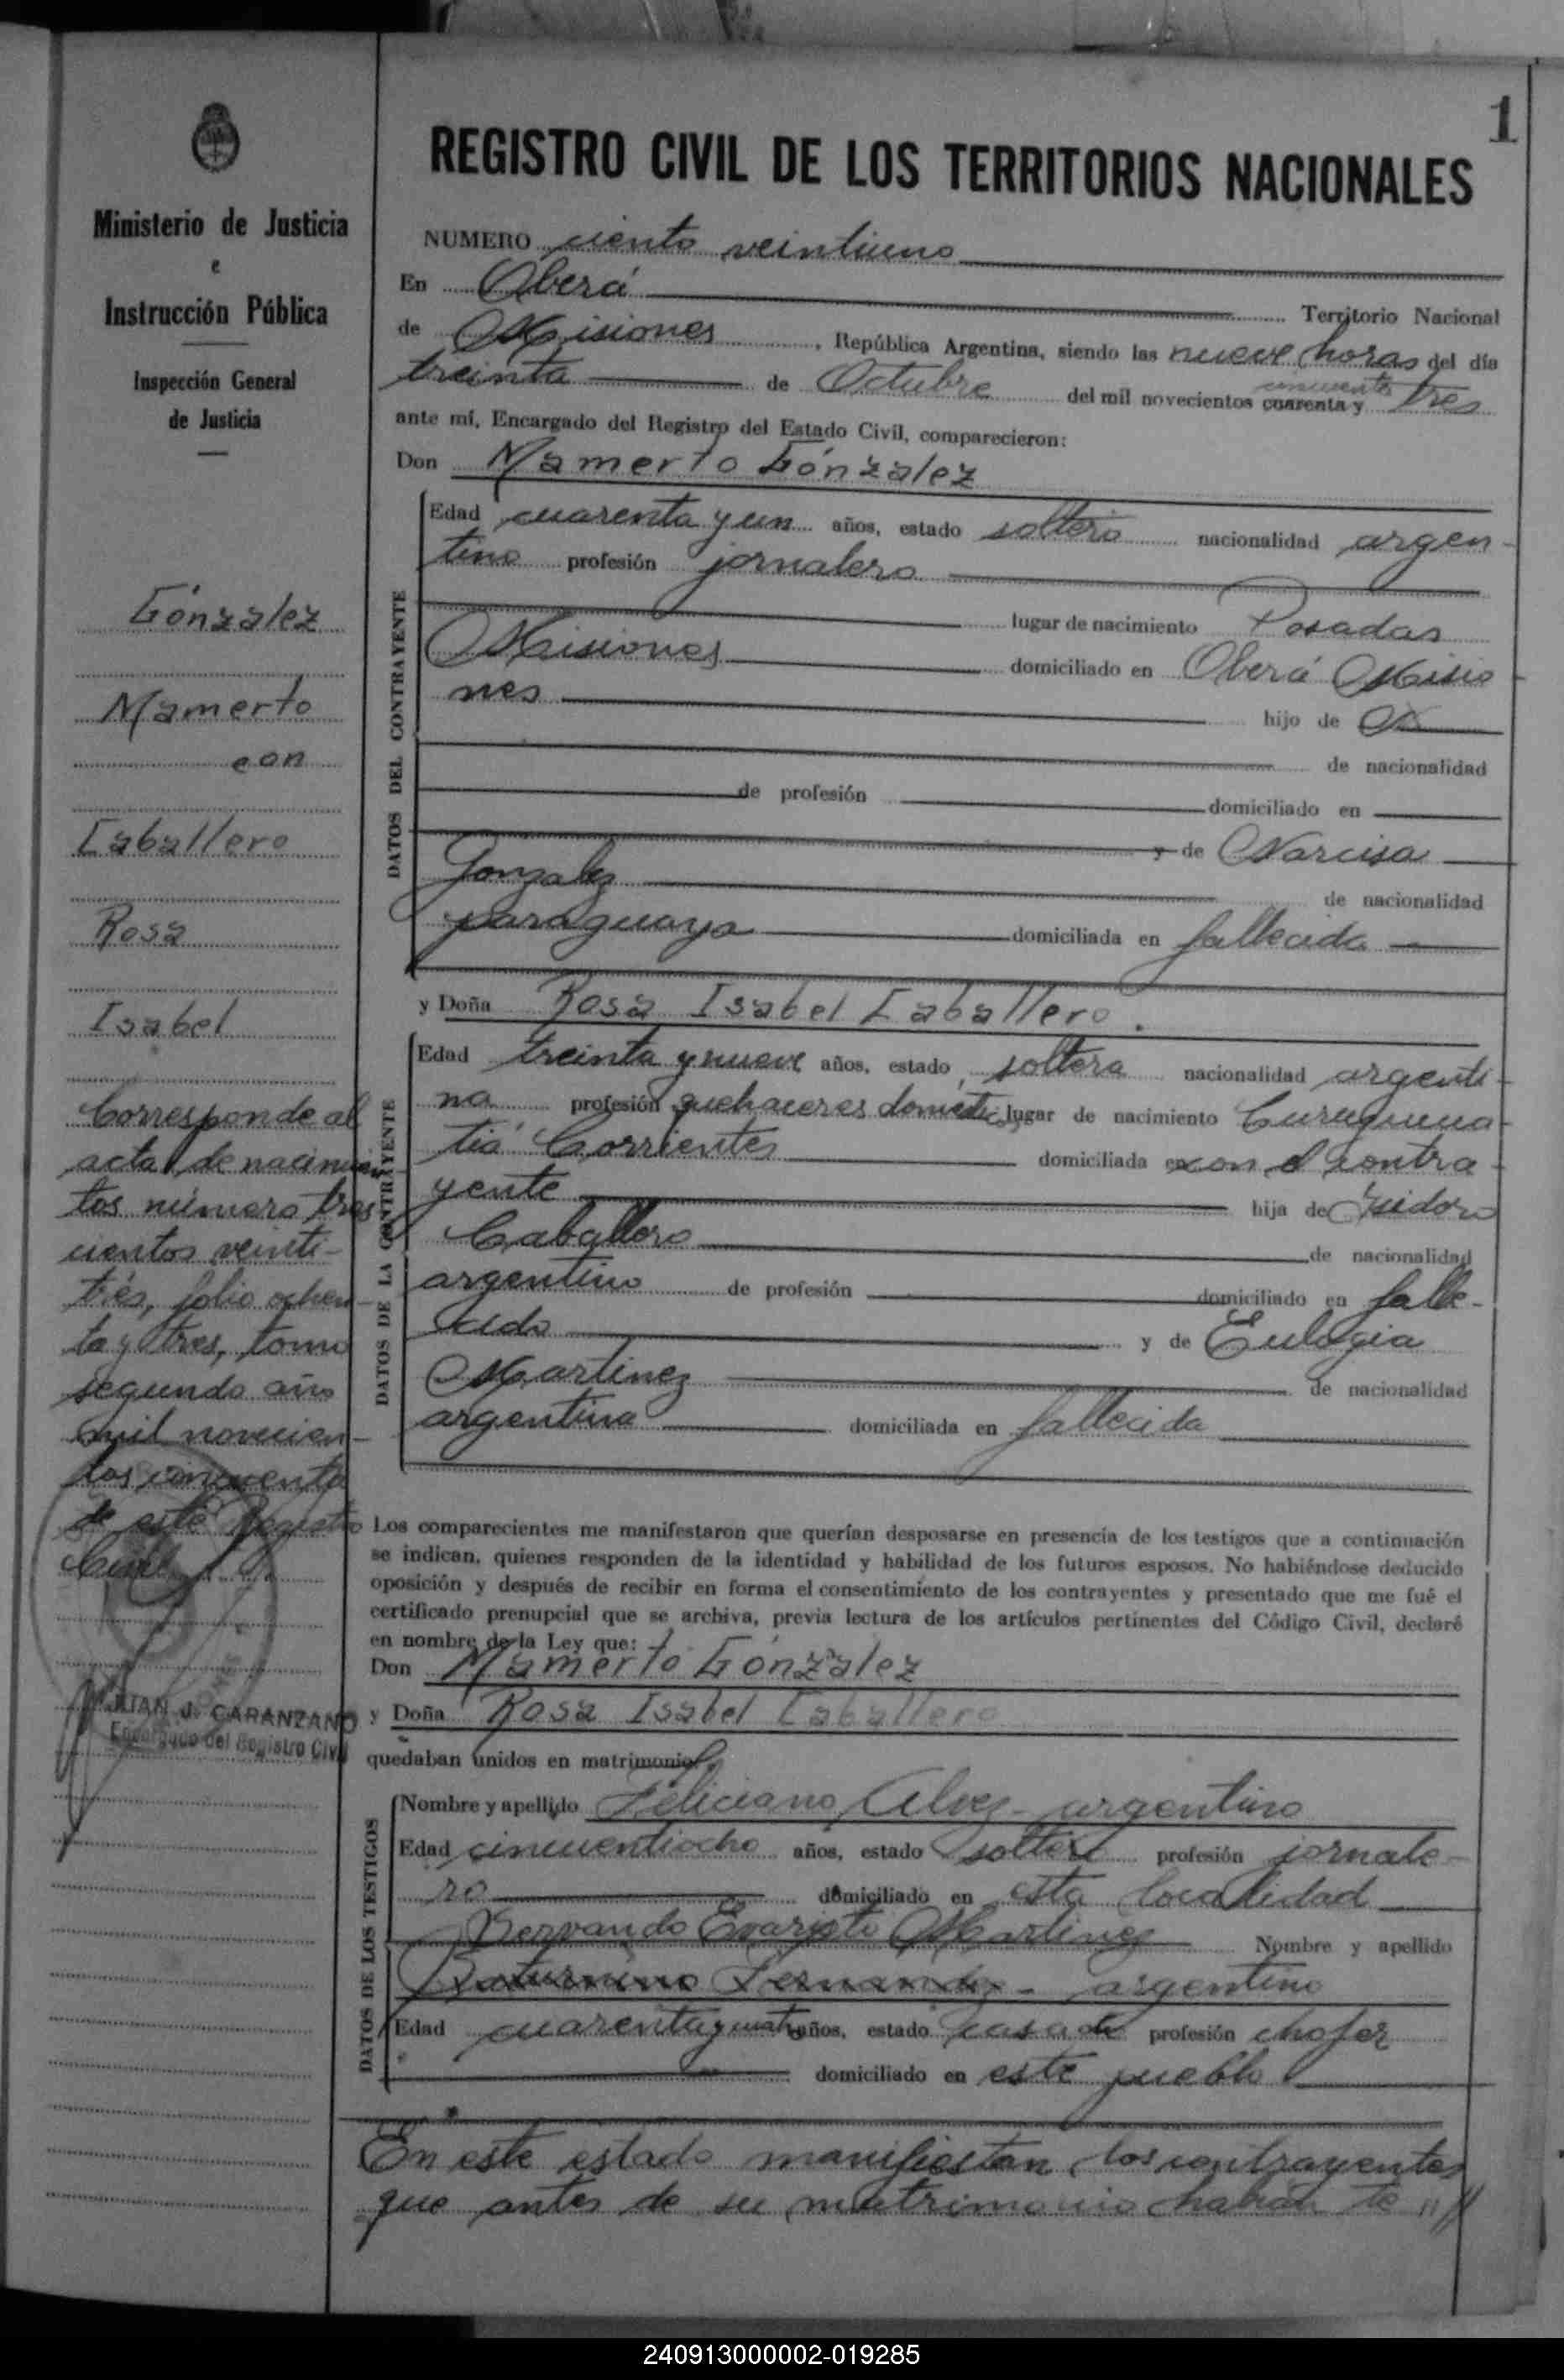 1
REGISTRO CIVIL DE LOS TERRITORIOS NACIONALES
Ministerio de Justicia
e
Instrucción Pública
Inspección General
de Justicia
Gónzalez
Mamerto
con
Caballero
Rosa
Isabel
Corresponde al
acta de nacimien
tos número tres
cientos veinti-
trés, folio ochen-
ta y tres, tomo
segundo año
mil novecien-
tos cincuenta
de este Registro
Civil
JUAN J. CARANZANO
Encargado del Registro Civil
NUMERO ciento veintiuno
En Oberá Territorio Nacional
de Misiones, República Argentina, siendo las nueve horas del día
cincuenta
treinta de Octubre del mil novecientos cuarenta y tres
ante mí, Encargado del Registro del Estado Civil, comparecieron:
Don Mamerto Gónzalez
DATOS DEL CONTRAYENTE
Edad cuarenta y un años, estado soltero nacionalidad argen-
tino profesión jornalero
lugar de nacimiento Posadas
Misiones domiciliado en Oberá Misio-
nes hijo de
de nacionalidad
de profesión domiciliado en
y de Narcisa
Gonzalez de nacionalidad
paraguaya domiciliada en fallecida
y Doña Rosa Isabel Caballero.
DATOS DE LA CONTRAYENTE
Edad treinta y nueve años, estado soltera nacionalidad argenti-
na profesión quehaceres domésticos lugar de nacimiento Curuzucua-
tiá Corrientes domiciliada en con el contra-
yente hija de Isidoro
Caballero de nacionalidad
argentino de profesión domiciliado en falle-
cido y de Eulogia
Martinez de nacionalidad
argentina domiciliada en fallecida
Los comparecientes me manifestaron que querían desposarse en presencia de los testigos que a continuación
se indican, quienes responden de la identidad y habilidad de los futuros esposos. No habiéndose deducido
oposición y después de recibir en forma el consentimiento de los contrayentes y presentado que me fué el
certificado prenupcial que se archiva, previa lectura de los artículos pertinentes del Código Civil, declaré
en nombre de la Ley que:
Don Mamerto Gónzalez
y Doña Rosa Isabel Caballero
quedaban unidos en matrimonio.
DATOS DE LOS TESTIGOS
Nombre y apellido Feliciano Alvez - argentino
Edad cincuentiocho años, estado soltero profesión jornale-
ro domiciliado en esta localidad
Servando Evaristo Martinez Nombre y apellido
Saturnino Fernandez - argentino
Edad cuarenta y cuatro años, estado casado profesión chofer
domiciliado en este pueblo
En este estado manifiestan los contrayentes
que antes de su matrimonio habían te "//
240913000002-019285